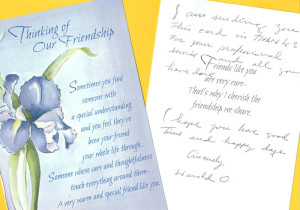 Thinking of
Our Friendship
Sometimes you find
someone with
a special understanding,
and you feel they've
been your friend
your whole life through...
Someone whose care and thoughtfulness
touch everything around them—
A very warm and special friend like you.
I am sending you
This card is THANKS
for your professional
service and all you
have done
Friends like you
are very rare—
That's why I cherish the
friendship we share.
I hope you have good
time and happy days
Sincerely
Harold O